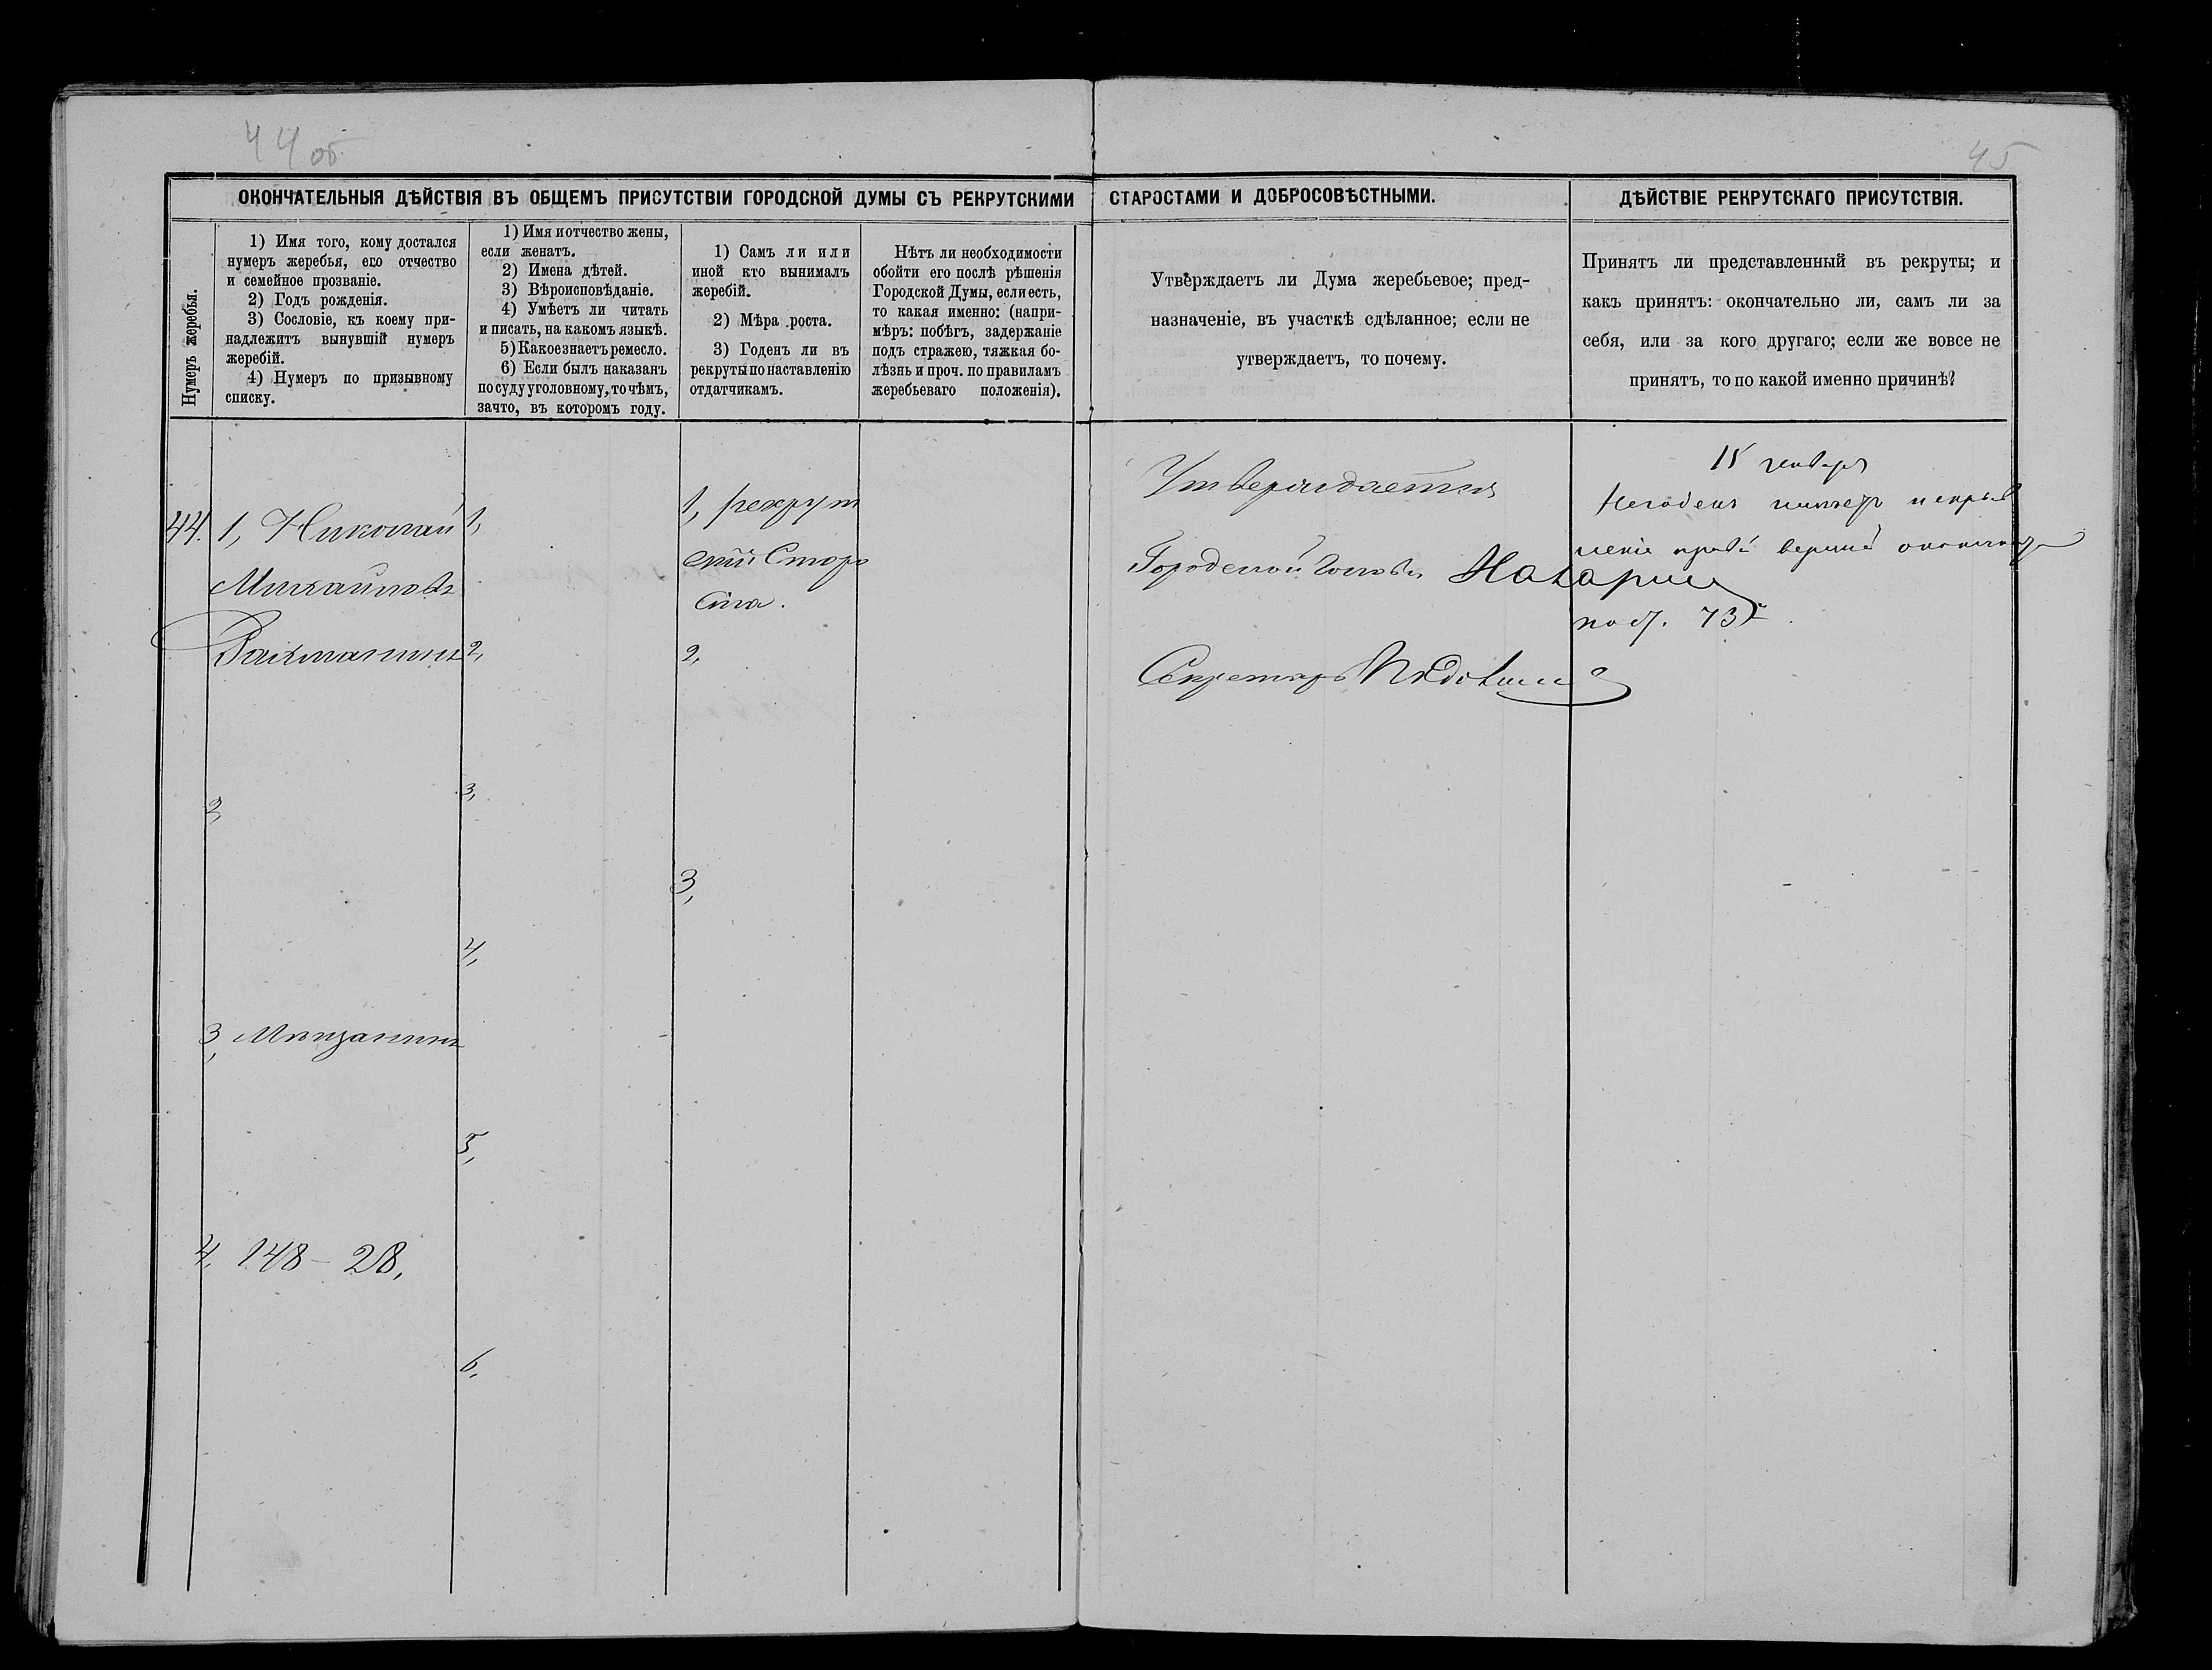 44 об
45
ОКОНЧАТЕЛЬНЫЯ ДѢЙСТВІЯ ВЪ ОБЩЕМЪ ПРИСУТСТВІИ ГОРОДСКОЙ ДУМЫ СЪ РЕКРУТСКИМИ СТАРОСТАМИ И ДОБРОСОВѢСТНЫМИ.
ДѢЙСТВІЕ РЕКРУТСКАГО ПРИСУТСТВІЯ.
Нумеръ жеребья.
1) Имя того, кому достался
нумеръ жеребья, его отчество
и семейное прозваніе.
2) Годъ рожденія.
3) Сословіе, къ коему при-
надлежитъ вынувшій нумеръ
жеребій.
4) Нумеръ по призывному
списку.
1) Имя и отчество жены,
если женатъ.
2) Имена дѣтей.
3) Вѣроисповѣданіе.
4) Умѣетъ ли читать
и писать, на какомъ языкѣ.
5) Какое знаетъ ремесло.
6) Если былъ наказанъ
по суду уголовному, то чѣмъ,
за что, въ которомъ году.
1) Самъ ли или
иной кто вынималъ
жеребій.
2) Мѣра роста.
3) Годенъ ли въ
рекруты по наставленію
отдатчикамъ.
Нѣтъ ли необходимости
обойти его послѣ рѣшенія
Городской Думы, если есть,
то какая именно: (напри-
мѣръ: побѣгъ, задержаніе
подъ стражею, тяжкая бо-
лѣзнь и проч. по правиламъ
жеребьеваго положенія).
Утверждаетъ ли Дума жеребьевое; пред-
назначеніе, въ участкѣ сдѣланное; если не
утверждаетъ, то почему.
Принятъ ли представленный въ рекруты; и
какъ принятъ: окончательно ли, самъ ли за
себя, или за кого другаго; если же вовсе не
принятъ, то по какой именно причинѣ?
44.
1, Николай
Михайловъ
Рахманинъ
2,
3, Мѣщанинъ
4, 148 – 28,
1,
2,
3,
4,
5,
6,
1, рекрут
скій Старо
ста.
2,
3,
Утверждается
Городской Голова
Секретарь
15 января
Негоденъ
73